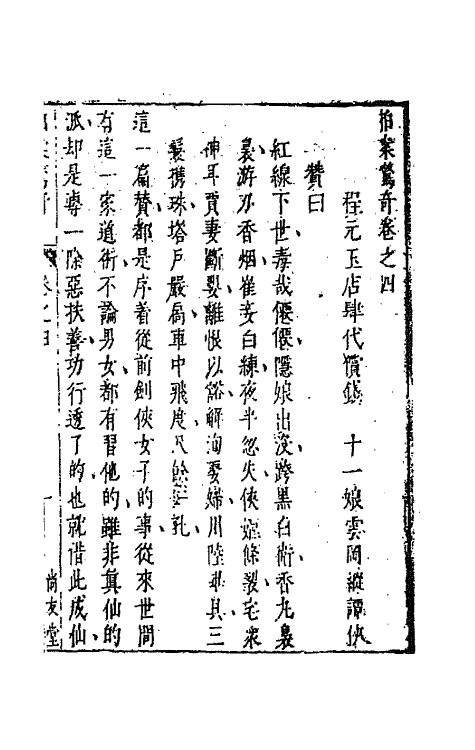 拍案驚奇卷之四
程元玉店肆代償錢　十一娘雲岡縱譚俠
贊曰
紅線下世毒哉僊僊隱娘出沒跨黑白衛香丸裊
裊游刃香烟崔妾白練夜半忽失俠嫗條裂宅衆
神耳賈妻斷嬰離恨以豁解洵娶婦川陸畢具三
鬟携珠塔戶嚴扃車中飛度尺餘一孔
這一篇贊都是序着從前劍俠女子的事從來世間
有這一家道術不論男女都有習他的雖非真仙的
派却是專一除惡扶善功行透了的也就借此成仙
卷之四
一
尚友堂